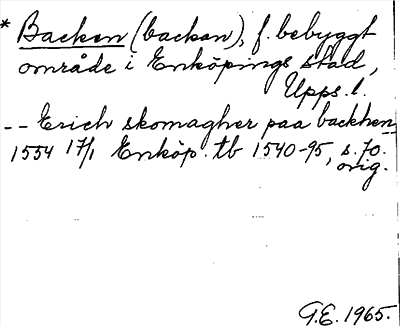 * Backen (backan), f. bebyggt
område i Enköpings stad,
Upps. l.
-- Erich skomagher paa backhen
1554 17/1 Enköp. tb 1540-95, s. 70.
orig.
G.E. 1965.